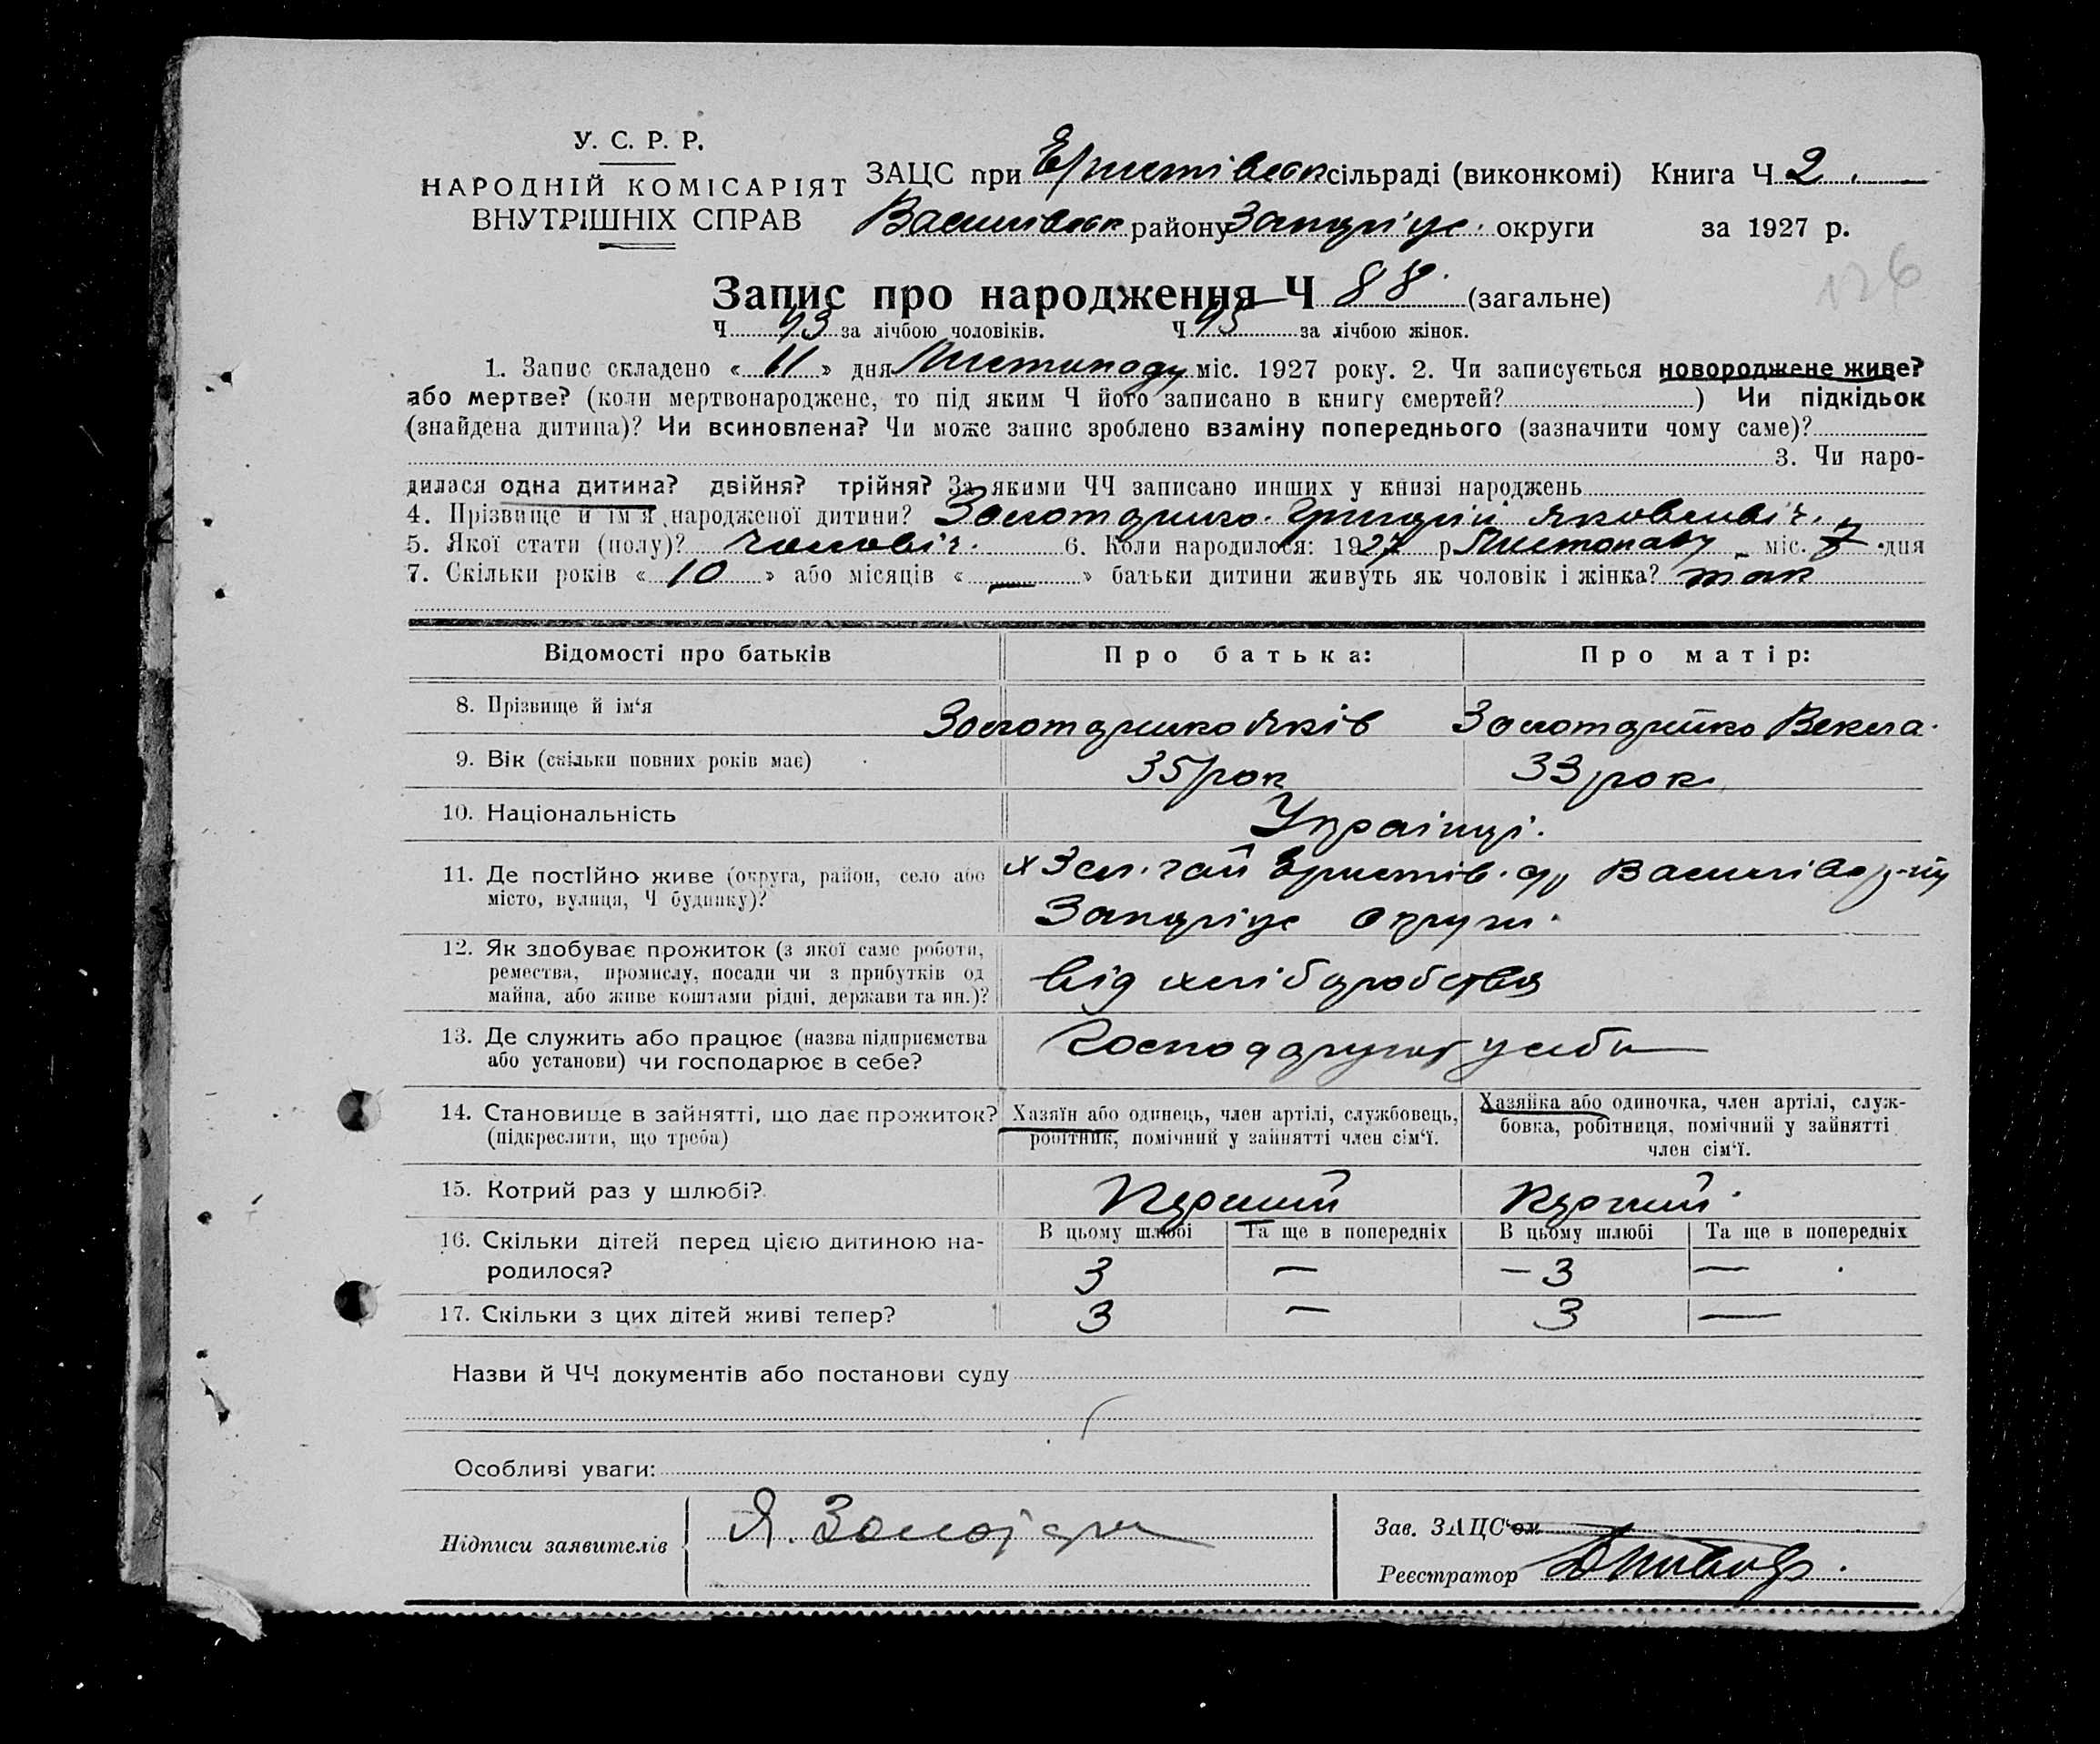 У. С. Р. Р.
НАРОДНІЙ КОМІСАРІЯТ
ВНУТРІШНІХ СПРАВ
ЗАЦС при сільраді (виконкомі) Книга Ч 2.
Василівськ району округи за 1927 р.
126
Запис про народження Ч 88 (загальне)
Ч за лічбою чоловіків. Ч за лічбою жінок.
1. Запис складено « 11 » дня Листопаду міс. 1927 року. 2. Чи записується новороджене живе?
або мертве? (коли мертвонароджене, то під яким Ч його записано в книгу смертей? ) Чи підкідьок
(знайдена дитина)? Чи всиновлена? Чи може запис зроблено взаміну попереднього (зазначити чому саме)?
3. Чи наро-
дилася одна дитина? двійня? трійня? За якими ЧЧ записано инших у книзі народжень
4. Прізвище й ім'я народженої дитини? Григорій Яковлевіч.
5. Якої стати (полу)? чоловіч. 6. Коли народилося: 1927 р Листопаду міс. дня
7. Скільки років « 10 » або місяців « — » батьки дитини живуть як чоловік і жінка? так
Відомості про батьків Про батька: Про матір:
8. Прізвище й ім'я Яків Векла.
9. Вік (скільки повних років має) 35 рок 33 рок
10. Національність Українці.
11. Де постійно живе (округа, район, село або
місто, вулиця, Ч будинку)?
округи.
12. Як здобуває прожиток (з якої саме роботи,
ремества, промислу, посади чи з прибутків од
майна, або живе коштами рідні, держави та ин.)?
від хліборобства
13. Де служить або працює (назва підприємства
або установи) чи господарює в себе?
14. Становище в зайнятті, що дає прожиток?
(підкреслити, що треба)
Хазяїн або одинець, член артілі, службовець,
робітник, помічний у зайнятті член сім'ї.
Хазяйка або одиночка, член артілі, служ-
бовка, робітниця, помічний у зайнятті
член сім'ї.
15. Котрий раз у шлюбі? Перший Перший.
16. Скільки дітей перед цією дитиною на-
родилося?
В цьому шлюбі Та ще в попередніх В цьому шлюбі Та ще в попередніх
3 — — 3 —
17. Скільки з цих дітей живі тепер? 3 — 3 —
Назви й ЧЧ документів або постанови суду
Особливі уваги:
Підписи заявителів Я.
Зав. ЗАЦС'ом
Реєстратор